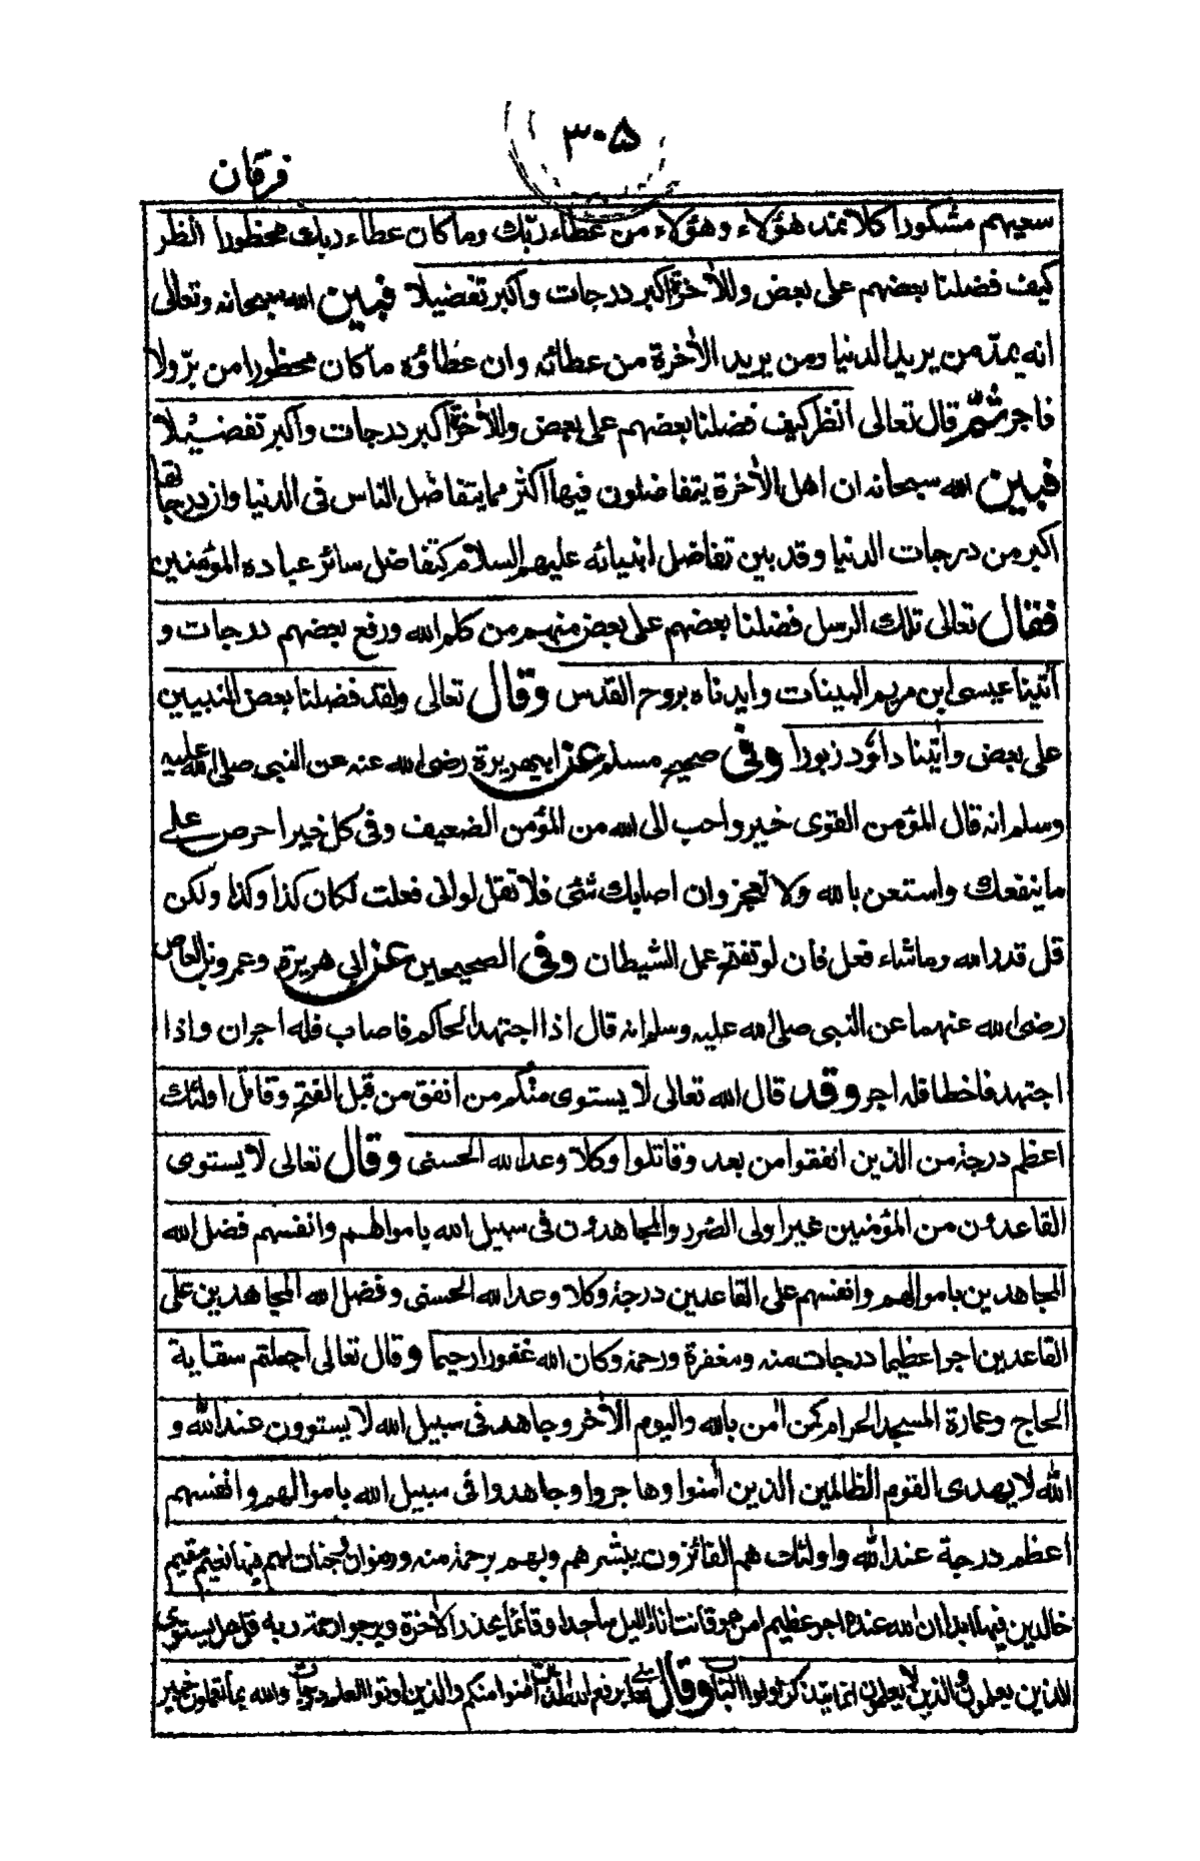 ٣٠٥
فرقان
سعيهم مشكورا كلا نمد هؤلاء و هؤلاء من عطاء ربّك وما كان عطاء ربك محظورا انظر
كيف فضلنا بعضهم على بعض وللأخرة اكبر درجات واكبر تفضيلا فبين الله سبحانه وتعالى
انه يمدّ من يريد الدنيا ومن يريد الأخرة من عطائه وان عطاؤه ما كان محظورا من برّ ولا
فاجر ثم قال تعالى انظر كيف فضلنا بعضهم على بعض وللأخرة اكبر درجات واكبر تفضيلا
فبين الله سبحانه ان اهل الأخرة يتفاضلون فيها اكثر مما يتفاضل الناس فى الدنيا وان درجاتها
اكبر من درجات الدنيا وقد بين تفاضل انبيائه عليهم السلام كتفاضل سائر عباده المؤمنين
فقال تعالى تلك الرسل فضلنا بعضهم على بعض منهم من كلم الله ورفع بعضهم درجات و
أتينا عيسى ابن مريم البينات وايدناه بروح القدس وقال تعالى ولقد فضلنا بعض النبيين
على بعض وأتينا داؤد زبورا وفى صحيح مسلم عن ابيهريرة رضى الله عنه عن النبى صلى الله عليه
وسلم انه قال المؤمن القوى خير واحب الى الله من المؤمن الضعيف وفى كل خير احرص على
ما ينفعك واستعن بالله ولا تعجز وان اصابك شئ فلا تقل لو انى فعلت لكان كذا وكذا ولكن
قل قدر الله وما شاء فعل فان لو تفتح عمل الشيطان وفى الصحيحين عن ابى هريرة وعمرو بن العاص
رضى الله عنهما عن النبى صلى الله عليه وسلم انه قال اذا اجتهد الحاكم فاصاب فله اجران واذا
اجتهد فاخطا فله اجر وقد قال الله تعالى لا يستوى منكم من انفق من قبل الفتح وقاتل اولئك
اعظم درجة من الذين انفقوا من بعد وقاتلوا وكلا وعد الله الحسنى وقال تعالى لا يستوى
القاعدون من المؤمنين غير اولى الضرر والمجاهدون فى سبيل الله باموالهم وانفسهم فضل الله
المجاهدين باموالهم وانفسهم على القاعدين درجة وكلا وعد الله الحسنى وفضل الله المجاهدين على
القاعدين اجرا عظيما درجات منه ومغفرة ورحمة وكان الله غفورا رحيما وقال تعالى اجعلتم سقاية
الحاج وعمارة المسجد الحرام كمن أمن بالله واليوم الأخر وجاهد فى سبيل الله لا يستوون عند الله و
الله لا يهدى القوم الظالمين الذين أمنوا وهاجروا وجاهدوا فى سبيل الله باموالهم وانفسهم
اعظم درجة عند الله واولئك هم الفائزون يبشرهم ربهم برحمة منه ورضوان وجنات لهم فيها نعيم مقيم
خالدين فيها ابدا ان الله عنده اجر عظيم امن هو قانت أناء الليل ساجدا وقائما يحذر الأخرة ويرجوا رحمة ربه قل هل يستوى
الذين يعلمون والذين لا يعلمون انما يتذكر اولوا الالباب وقال تعالى يرفع الله الذين أمنوا منكم والذين اوتوا العلم درجات والله بما تعملون خبير